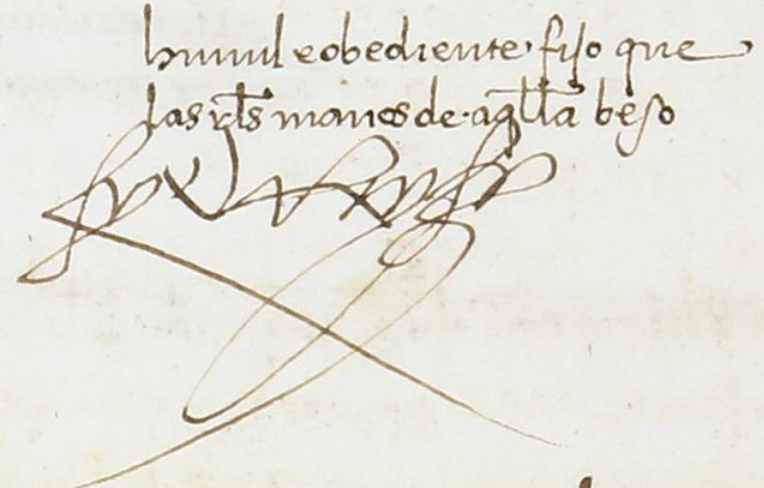 humil e obediente fijo que
las rl̅s manos de aq̅lla beso